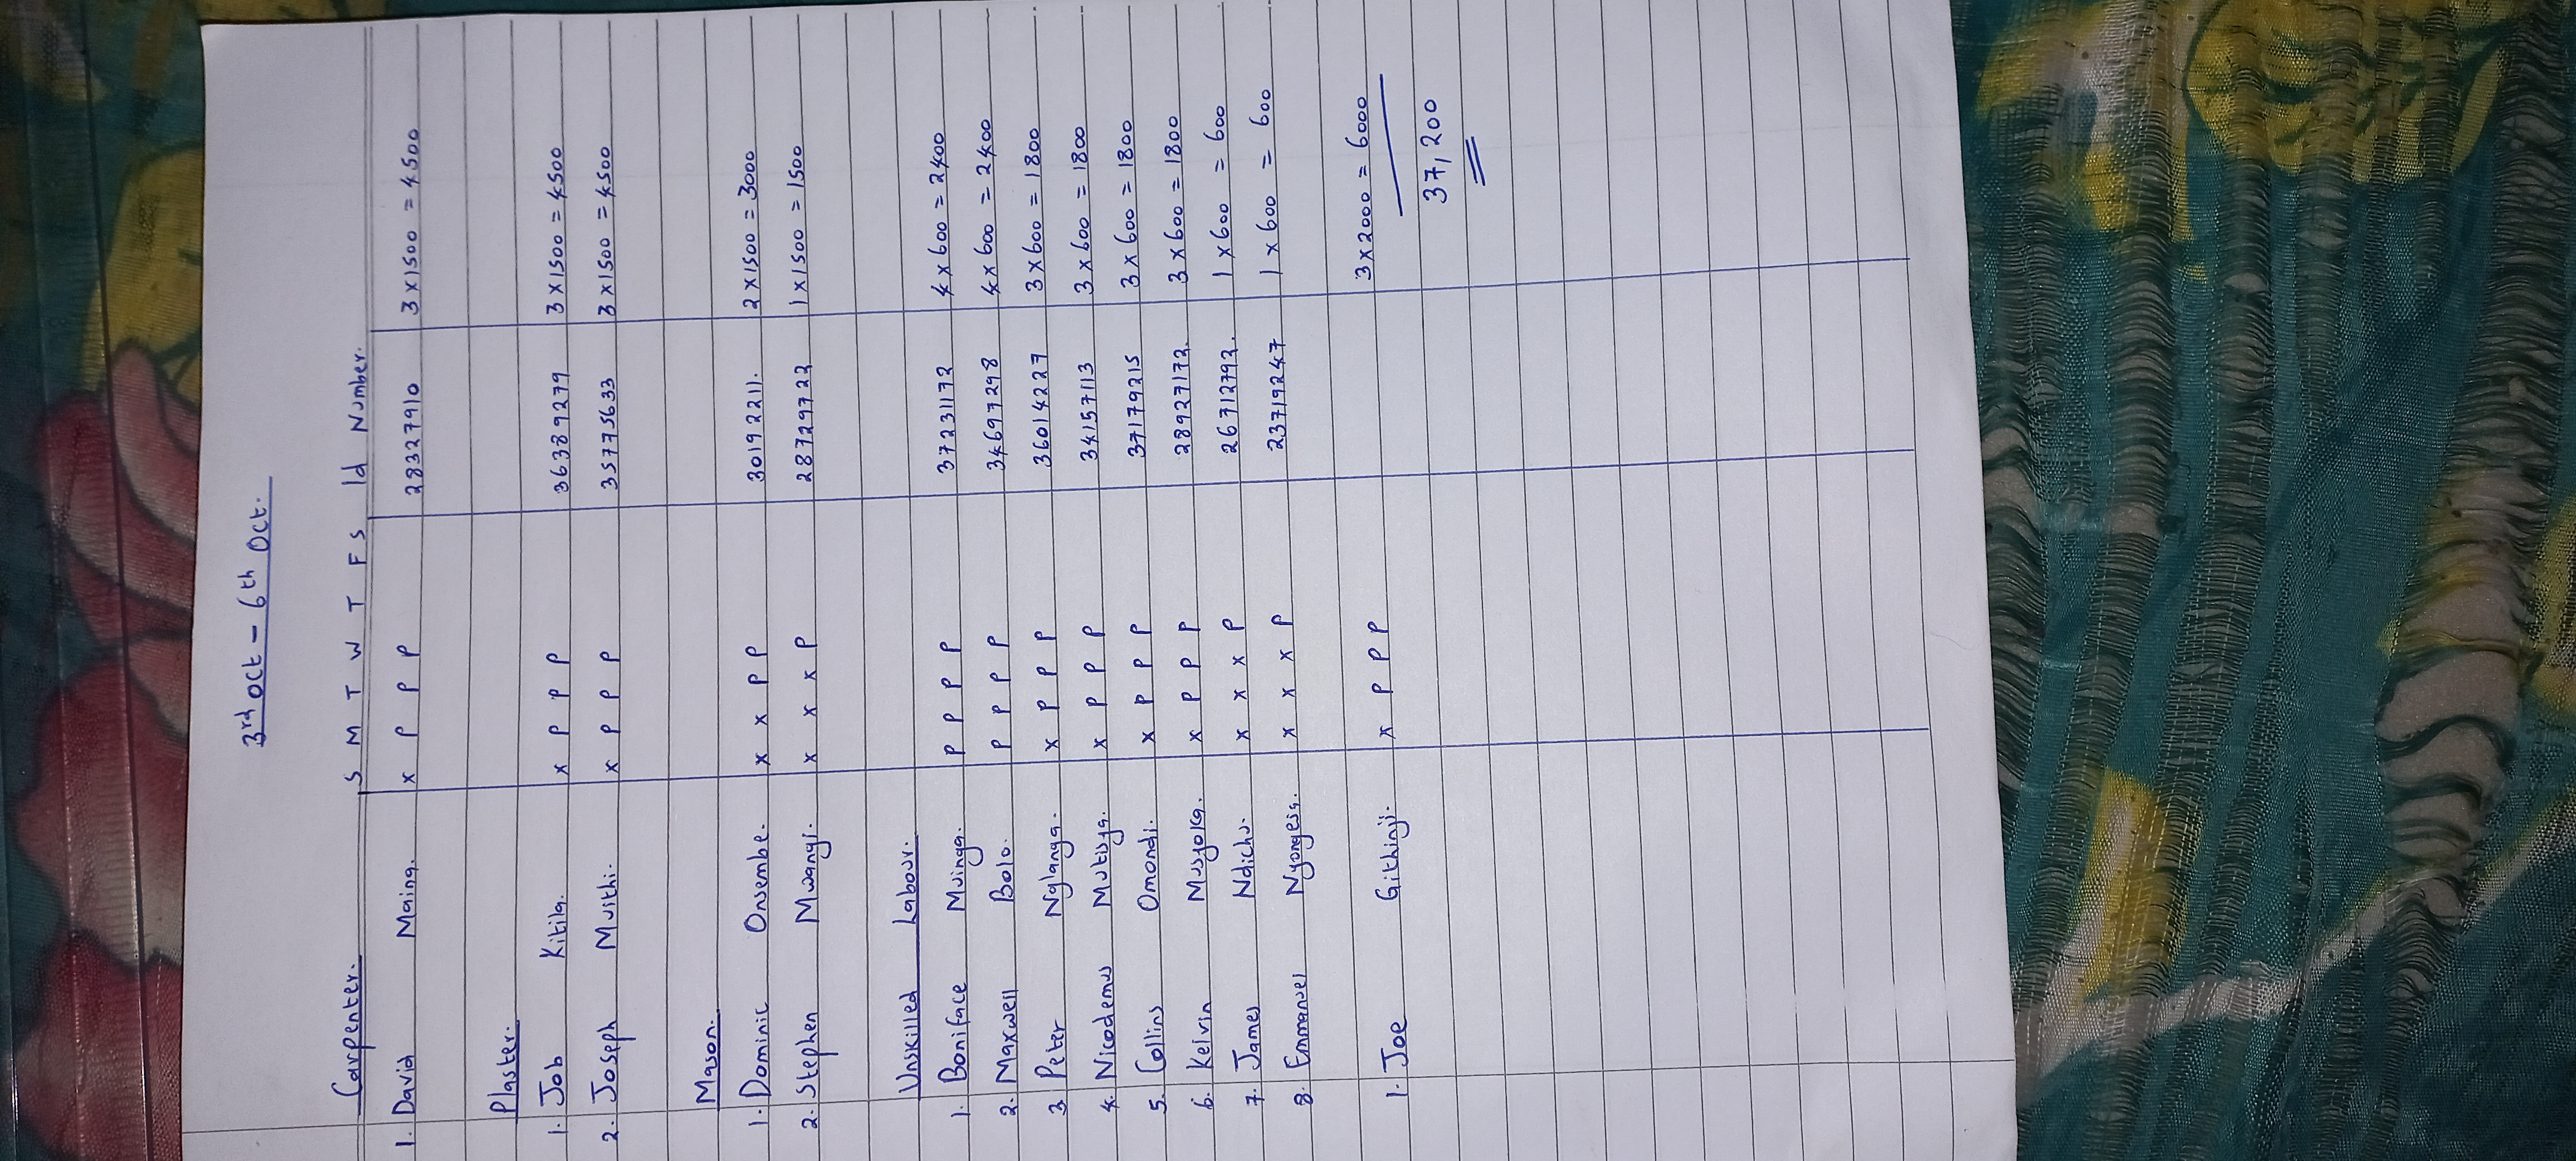 3rd Oct - 6th Oct.
Carpenter. S M T W T F S Id Number.
1. David Maina. x P P P 28327910 3 x 1500 = 4500
Plaster.
1. Job Kitila. x P P P 36389279 3 x 1500 = 4500
2. Joseph Muithi. x P P P 35775633 3 x 1500 = 4500
Mason.
1. Dominic Onsembe. x x P P 30192211. 2 x 1500 = 3000
2. Stephen Mwangi. x x x P 28729722 1 x 1500 = 1500
Unskilled Labour.
1. Boniface Muinga. P P P P 37231172 4 x 600 = 2400
2. Maxwell Bolo. P P P P 34697298 4 x 600 = 2400
3 Peter Nglanga. x P P P 36014227 3 x 600 = 1800
4. Nicodemus Mutisya. x P P P 34157113 3 x 600 = 1800
5. Collins Omondi. x P P P 37179215 3 x 600 = 1800
6. Kelvin Musyoka. x P P P 28927172. 3 x 600 = 1800
7. James Ndichu. x x x P 26712792. 1 x 600 = 600
8. Emmanuel Nyongesa. x x x P 23719247 1 x 600 = 600
1. Joe Githinji. x P P P 3 x 2000 = 6000
37,200